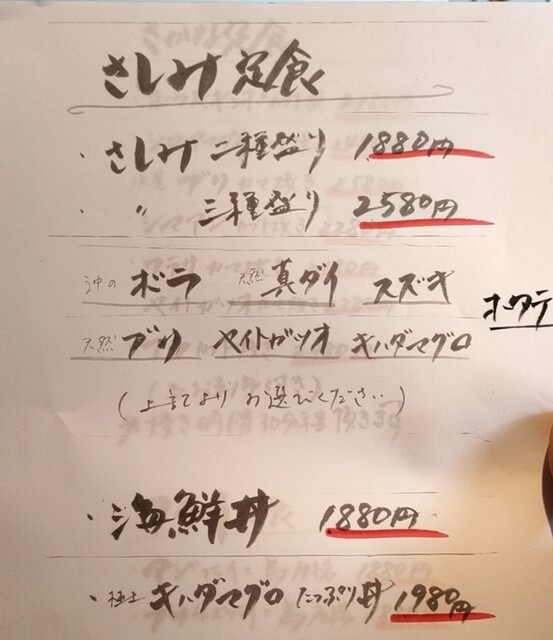 さしみ定食
・さしみ 二種盛り 1880円
・ 〃 三種盛り 2580円
沖の ボラ 天然 真ダイ スズキ
ホタテ
天然 ブリ ヤイトガツオ キハダマグロ
(上記よりお選びください)
・海鮮丼 1880円
・極上 キハダマグロ たっぷり丼 1980円